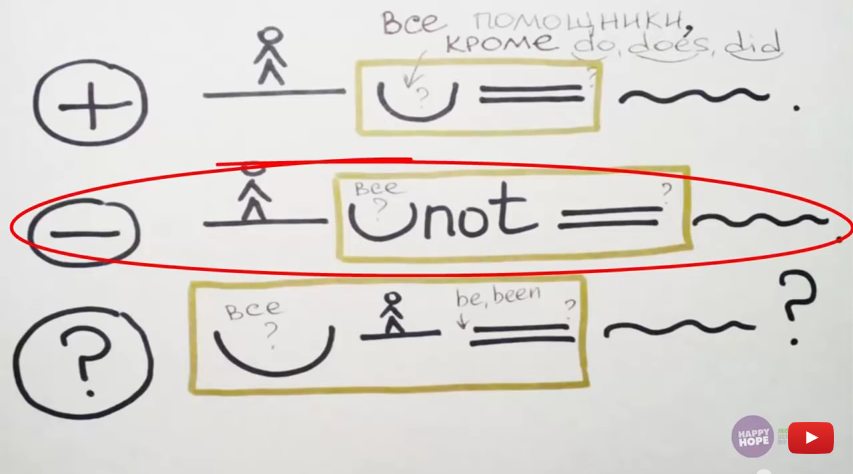 Все помощники,
кроме do, does, did
?
?
+
.
Все
?
not
?
−
.
Все
?
be, been
?
?
?
HAPPY
HOPE